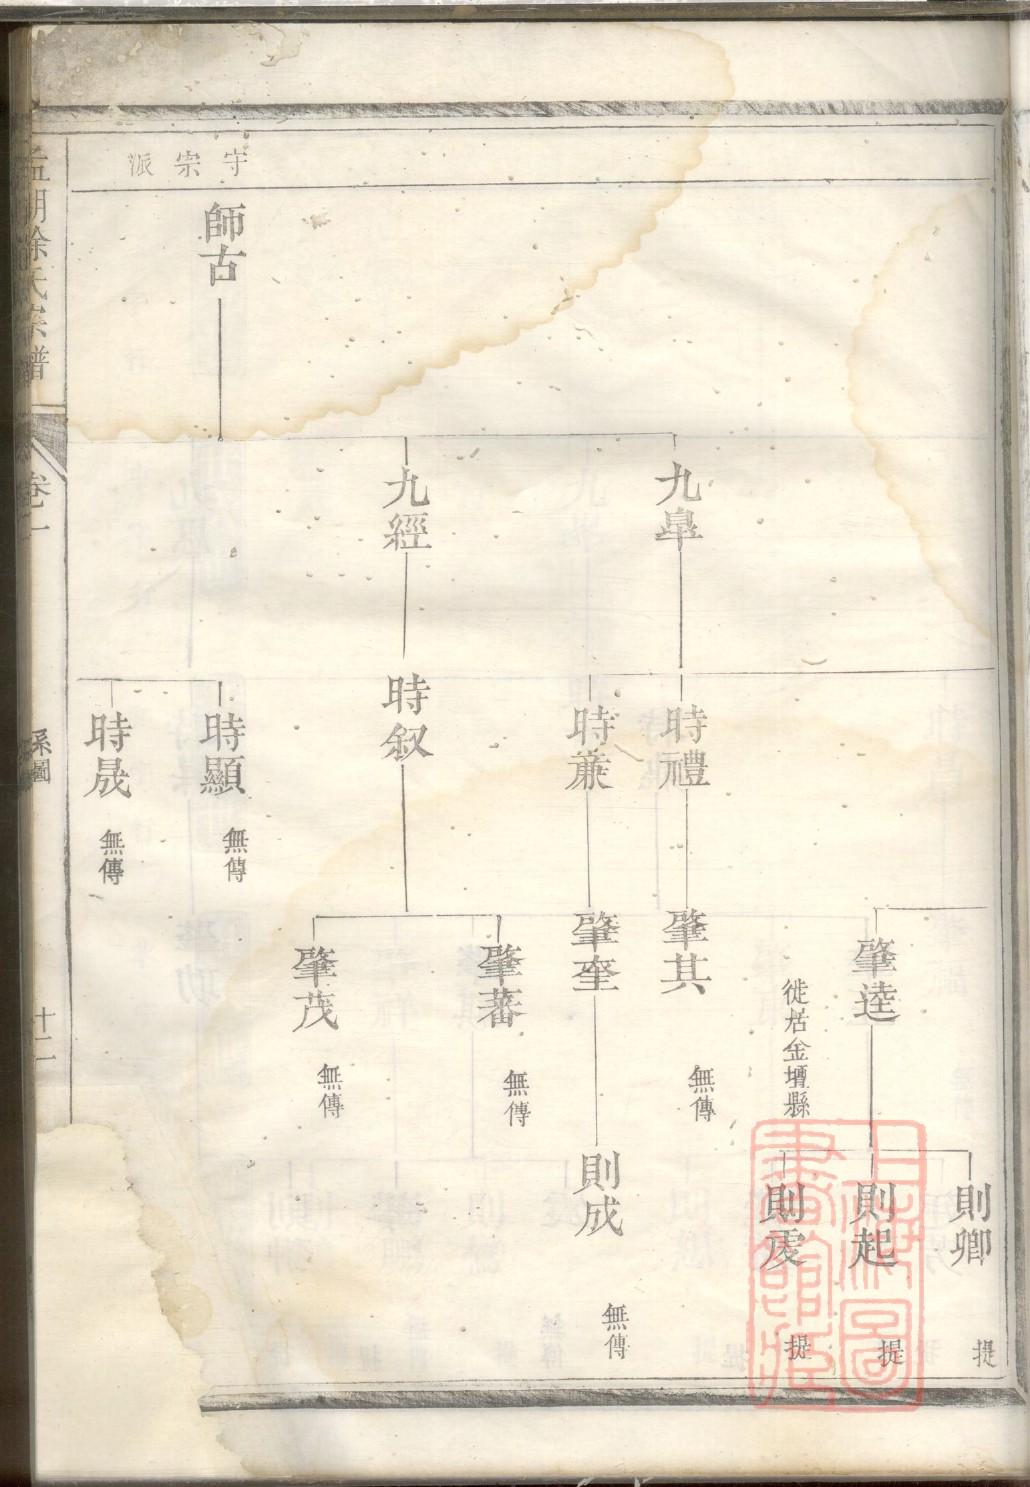 守宗派
師古
九皐
九經
時禮
時蒹
時叙
時顯
無傳
時晟
無傳
肇逵
徙居金壇縣
肇其
無傳
肇奎
肇蕃
無傳
肇茂
無傳
則卿
提
則起
提
則虔
提
則成
無傳
孟湖徐氏宗譜
卷一
系圖
十二
上海圖書館藏